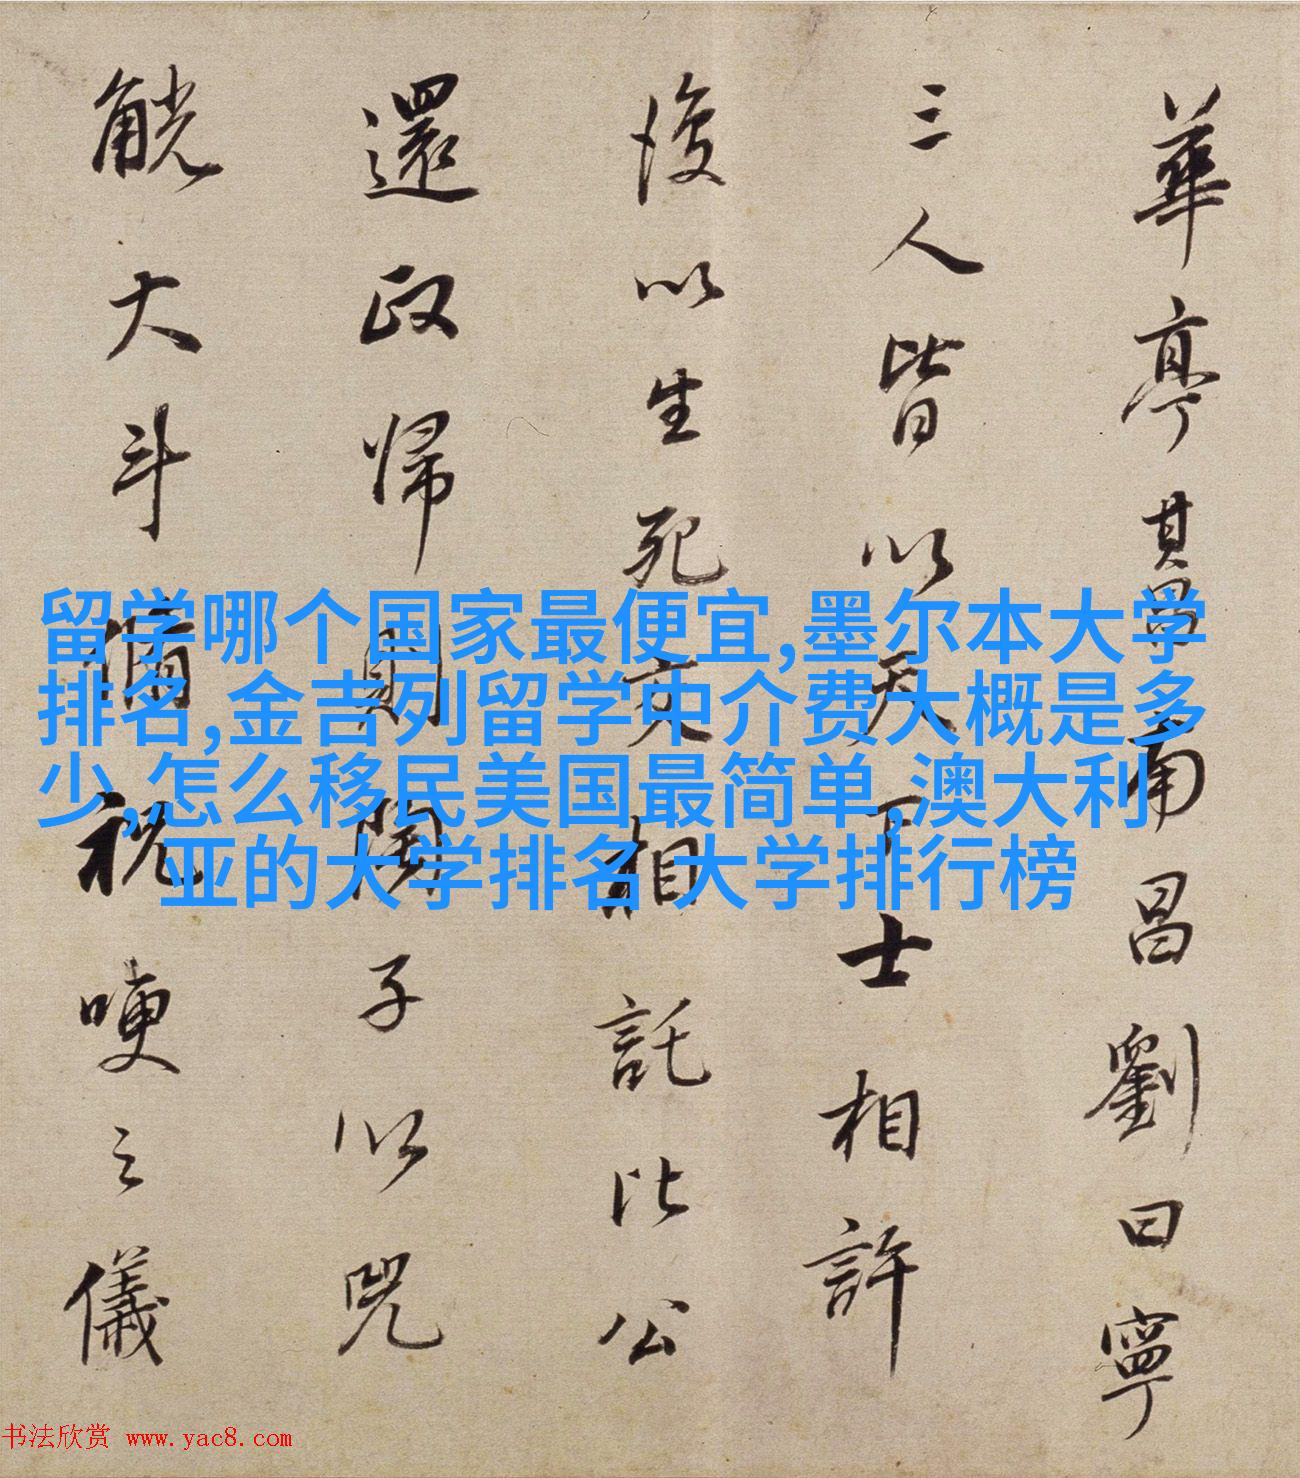 華亭其昌南昌劉曰寧
三人皆以天下士相許
後以生死交相託比公
還政歸則子以兕
觥大斗備祝哽之儀
留学哪个国家最便宜,墨尔本大学
排名,金吉列留学中介费大概是多
少,怎么移民美国最简单,澳大利
亚的大学排名 大学排行榜
书法欣赏 www.yac8.com